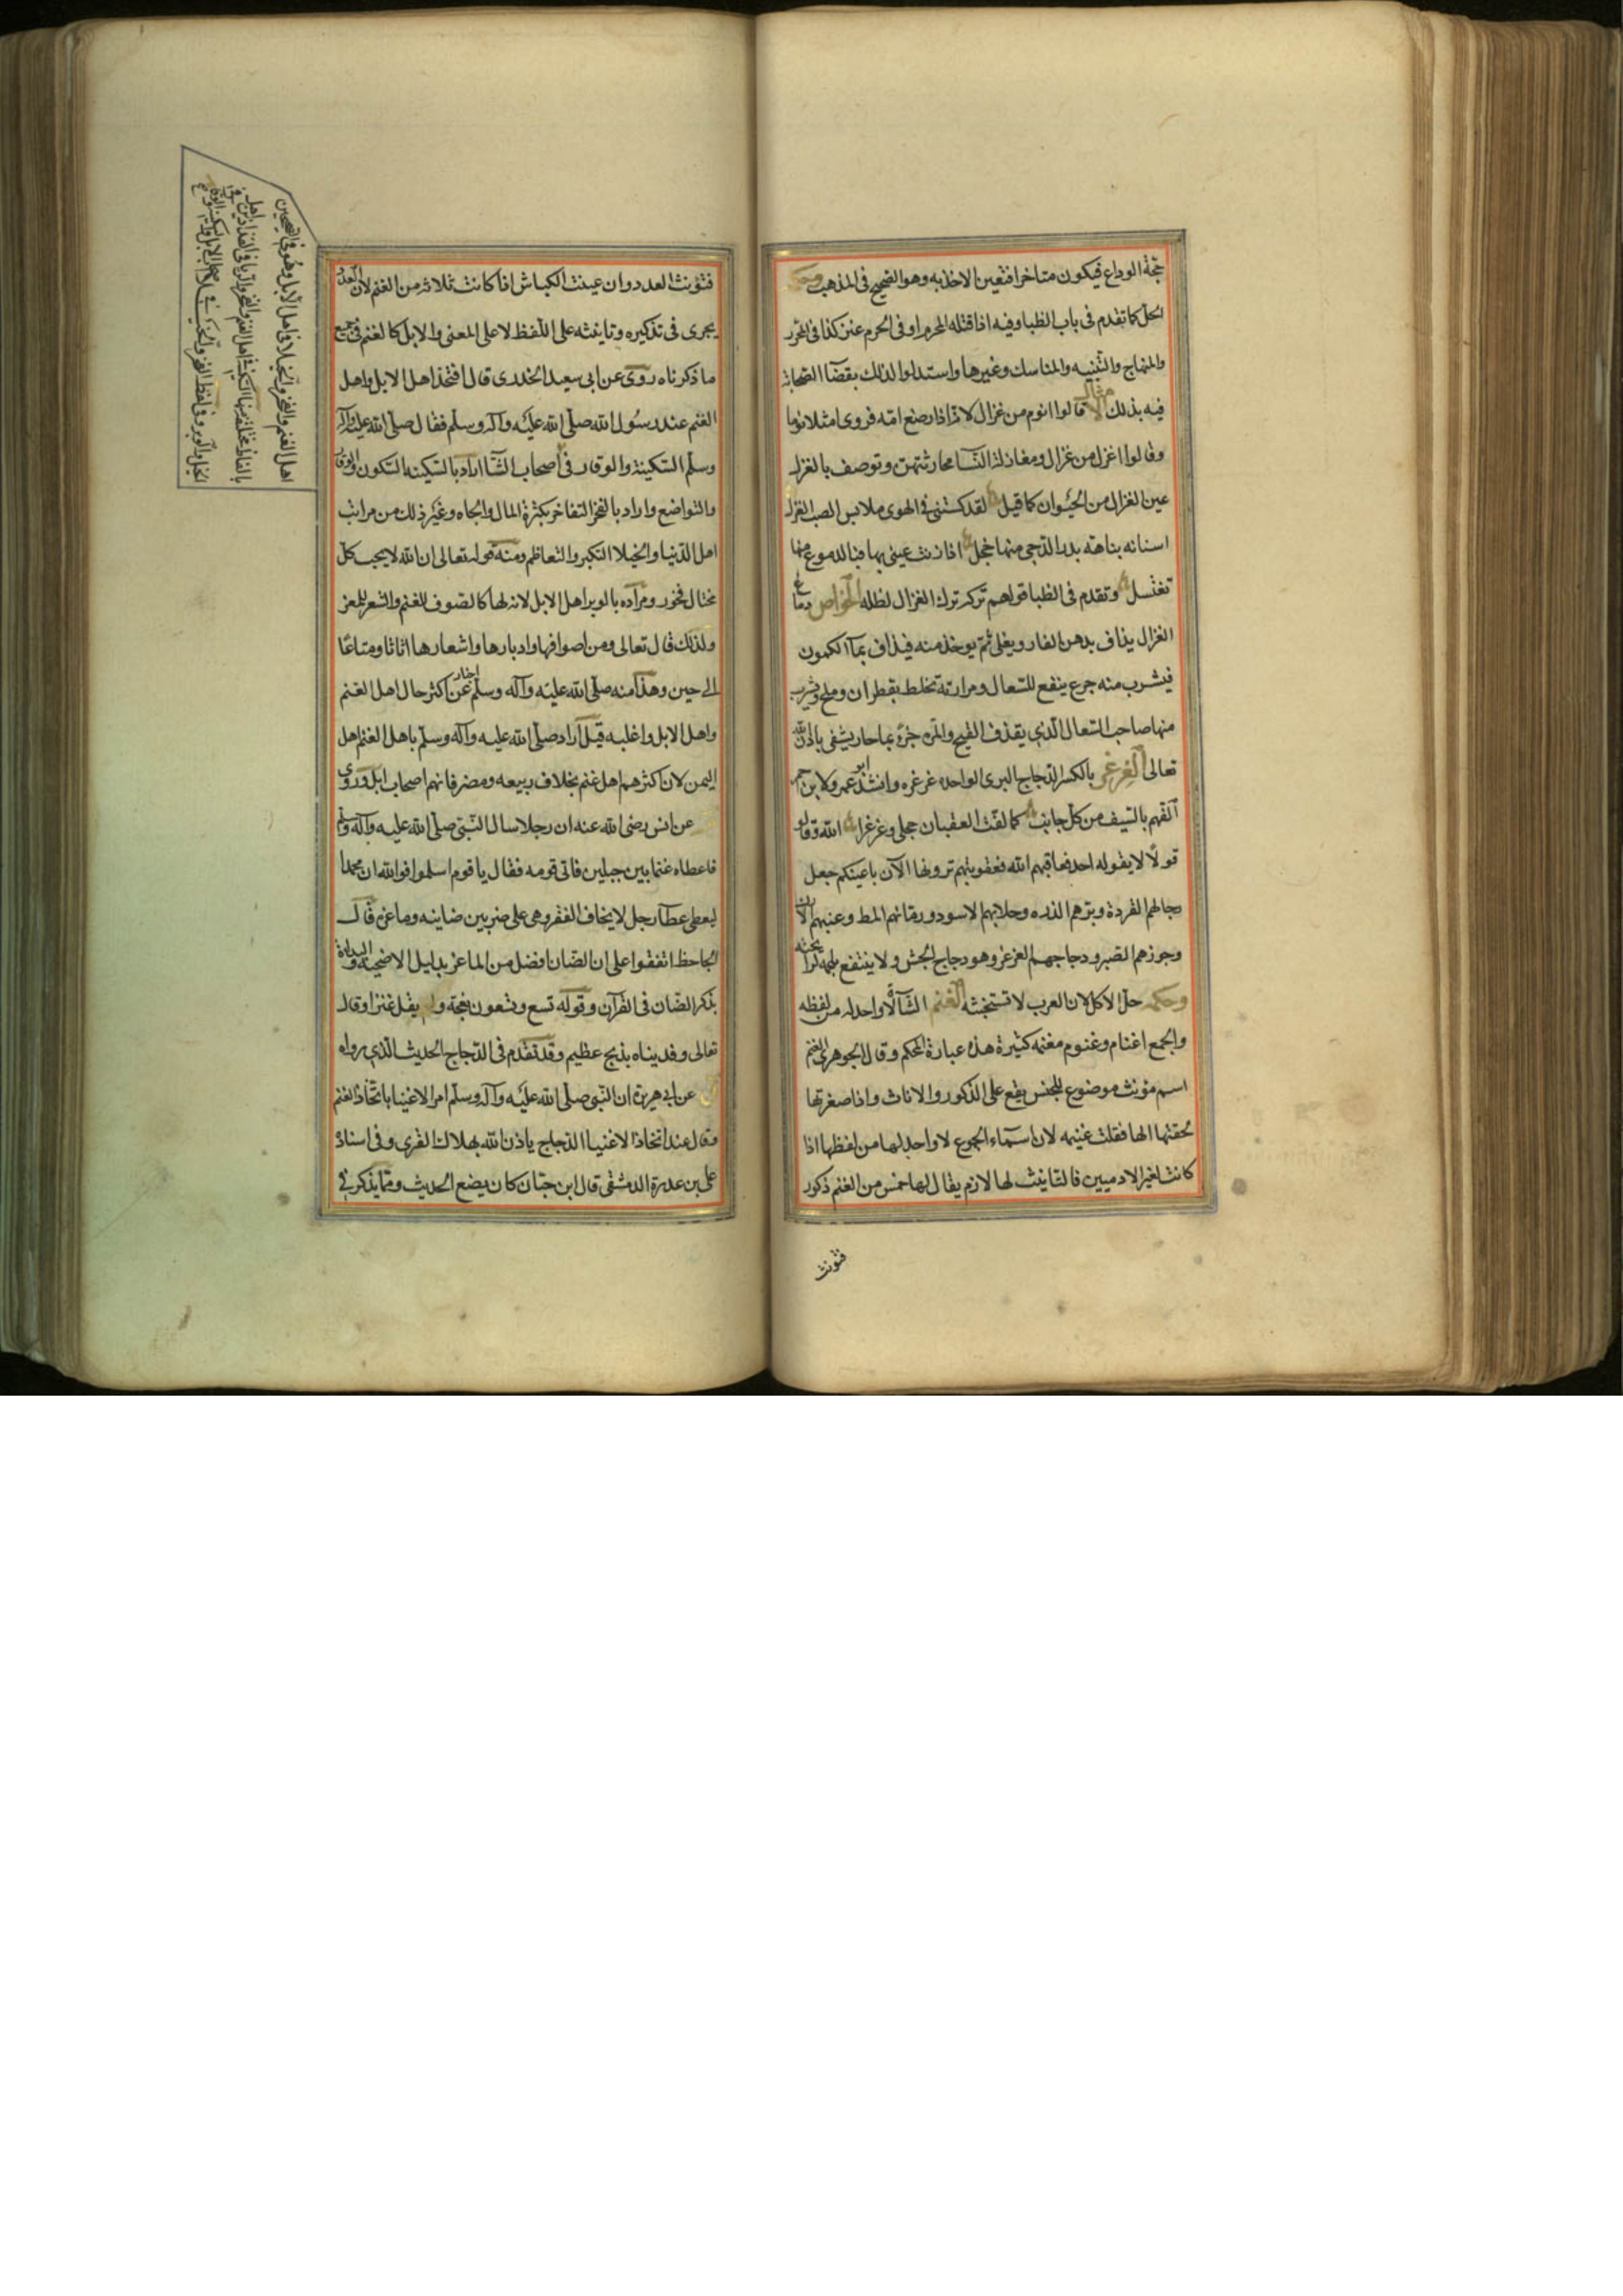 حجّة الوداع فيكون متاخرا فتعين الاخذ به وهو الصحيح فى المذهب وحكمه
الحل كما تقدم فى باب الظبا وفيه اذا قتله المحرم او فى الحرم عنز كذا فى المحرر
والمنهاج والتّنبيه والمناسك وغيرها واستدلوا لذلك بقضآ الصّحابة
فيه بذلك الامثال قالوا انوم من غزال لانّه اذا رضع امّه فروى امتلا نوما
وقالوا اغزل من غزال ومغازلة النّسا محادثتهن وتوصف بالغزل
عين الغزال من الحيوان كما قيل لقد كستنى فى الهوى ملابس الصب الغزل
انسانه بتاهته بدر الدّجى منها خجل اذا زنت عينى بها فبالدموع منها
تغتسل وتقدم فى الظبا قولهم تركه ترك الغزال لظله الخواص دماغ
الغزال يذاف بدهن الغار ويغلى ثمّ يوخذ منه فيذاف بمآ الكمون
فيشرب منه جرع ينفع للسّعال ومرارته تخلط بقطران وملح ويشرب
منها صاحب السّعال الّذى يقذف القيح والدّم جزءً بماء حار يشفى باذن الله
تعالى الغرغر بالكسر الدّجاج البرى الواحده غرغره وانشد ابو عمرو لابن احمر
الفهم بالسّيف من كل جانب كما لفّت العقبان حجلى وغرغرا الله وقالوا
قولًا لا يقوله احد فعاقبهم الله فعقوبتهم ترونها الآن باعينكم جعل
رجالهم القردة وبرّهم الذره وكلابهم الاسود ورمّانهم المظ وعنبهم الاراك
وجوزهم الضبر ودجاجهم الغرغر وهو دجاج الحبش ولا ينتفع بلحمه لرايحته
وحكمه حلّ الاكل لان العرب لا تستخبثه الغنم الشّآء لا واحد له من لفظه
والجمع اغنام وغنوم مغنمه كثيرة هذه عبارة المحكم وقال الجوهرى الغنم
اسم مؤنث موضوع للجنس يقع على الذكور والاناث واذا صغرتها
لحقتها الها فقلت غنيمه لان اسمآء الجموع لا واحد لها من لفظها اذا
كانت لغير الادميين فالتانيث لها لازم يقال لها خمس من الغنم ذكور
فتؤنث
فتؤنث العدد وان عينت الكباش اذا كانت ثلاثة من الغنم لان العدد
يجرى فى تذكيره وتانيثه على اللّفظ لا على المعنى والابل كالغنم فى جميع
ما ذكرناه روى عن ابى سعيد الخدرى قال افتخر اهل الابل واهل
الغنم عند رسُول الله صلّى الله عليْه وآله وسلّم فقال صلّى الله عليه وآله
وسلّم السّكينة والوقار فى اصحاب الشّآ اراد بالسّكينه السّكون والوقار
والتواضع واراد بالفخر التفاخر بكثرة المال والجاه وغيْر ذلك من مراتب
اهل الدّنيا والخيلا التكبر والتعاظم ومنه قوله تعالى ان الله لا يحبّ كلّ
مختال فخور ومراده بالوبر اهل الابل لانه لها كالصّوف للغنم والشعر للمعز
ولذلك قال تعالى ومن اصوافها واوبارها واشعارها اثاثا ومتاعًا
الى حين وهذا منه صلّى الله عليْه وآله وسلّم اخبار عن اكثر حال اهل الغنم
واهل الابل واغلبه قيل اراد صلّى الله عليه وآله وسلّم باهل الغنم اهل
اليمن لان اكثرهم اهل غنم بخلاف ربيعه ومضر فانهم اصحاب ابل وروى
عن انس رضى الله عنه ان رجلا سال النّبىّ صلّى الله عليه وآله وسلم
فاعطاه غنما بين جبلين فاتى قومه فقال يا قوم اسلموا فوالله ان محمدا
ليعطى عطآ رجل لا يخاف الفقر وهى على ضربين ضاينه وماعزه قال
الجاحظ اتفقوا على ان الضّان افضل من الماعز بدليل الاضحيّة والبداءة
بذكر الضّان فى القرآن وقوله تسع وتسعون نعجة ولم يقل عنزا وقال
تعالى وفديناه بذبح عظيم وقد تقدّم فى الدّجاج الحديث الّذى رواه
عن ابى هريرة ان النّبى صلّى الله عليْه وآله وسلّم امر الاغنيا باتّخاذ الغنم
وقال عند اتخاذ الاغنيا الدّجاج ياذن الله بهلاك القرى وفى اسناده
على بن عروة الدمشقى قال ابن حبّان كان يضع الحديث وممّا يذكر فى
اهل الغنم والفخر والخيلا فى اهل الابل وهو فى الصحيحين
بالفاظ مختلفه منها السّكينة فى اهل الغنم والفخر والريا فى الفدادين اهل
الخيل والوبر وفى لفظ الفخر والخيلا فى اصحاب الابل والسّكينة والوقار